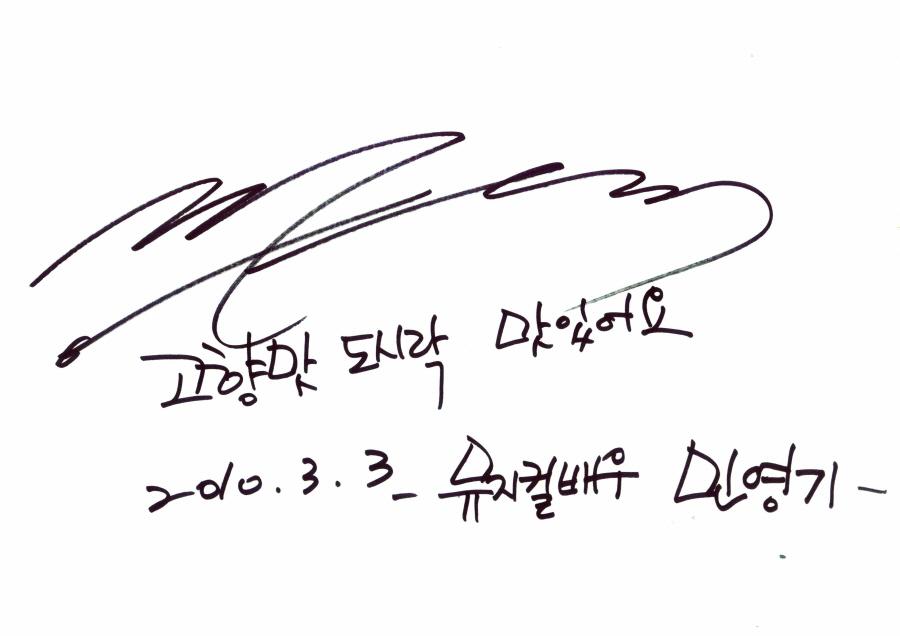 고향맛 도시락 맛있어요
2010. 3. 3_ 뮤지컬배우 민영기 -